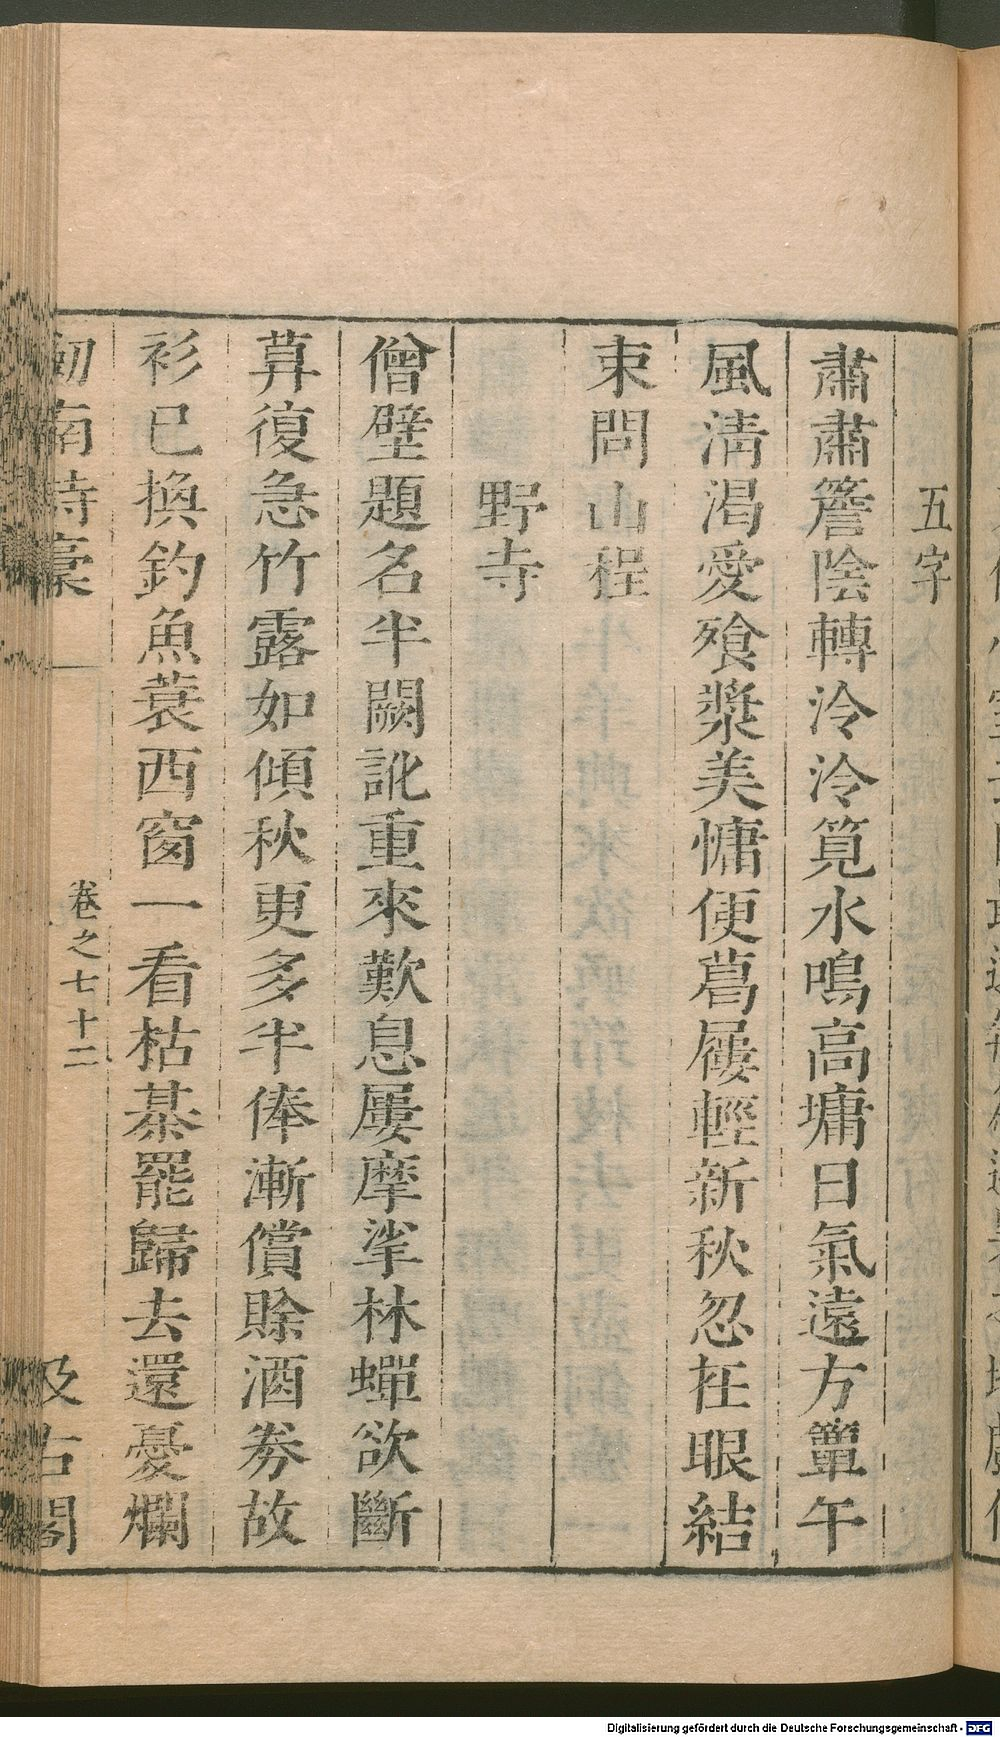 五字
肅肅簷陰轉泠泠筧水鳴高墉日氣遠方簟午
風淸渴愛飱漿美慵便葛屨輕新秋忽在眼結
束問山程
野寺
僧壁題名半闕訛重來歎息屢摩挲林蟬欲斷
葊復急竹露如傾秋更多半俸漸償賒酒券故
衫已換釣魚蓑西窗一看枯棊罷歸去還憂爛
劒南詩稾
卷之七十二
汲古閣
Digitalisierung gefördert durch die Deutsche Forschungsgemeinschaft - DFG